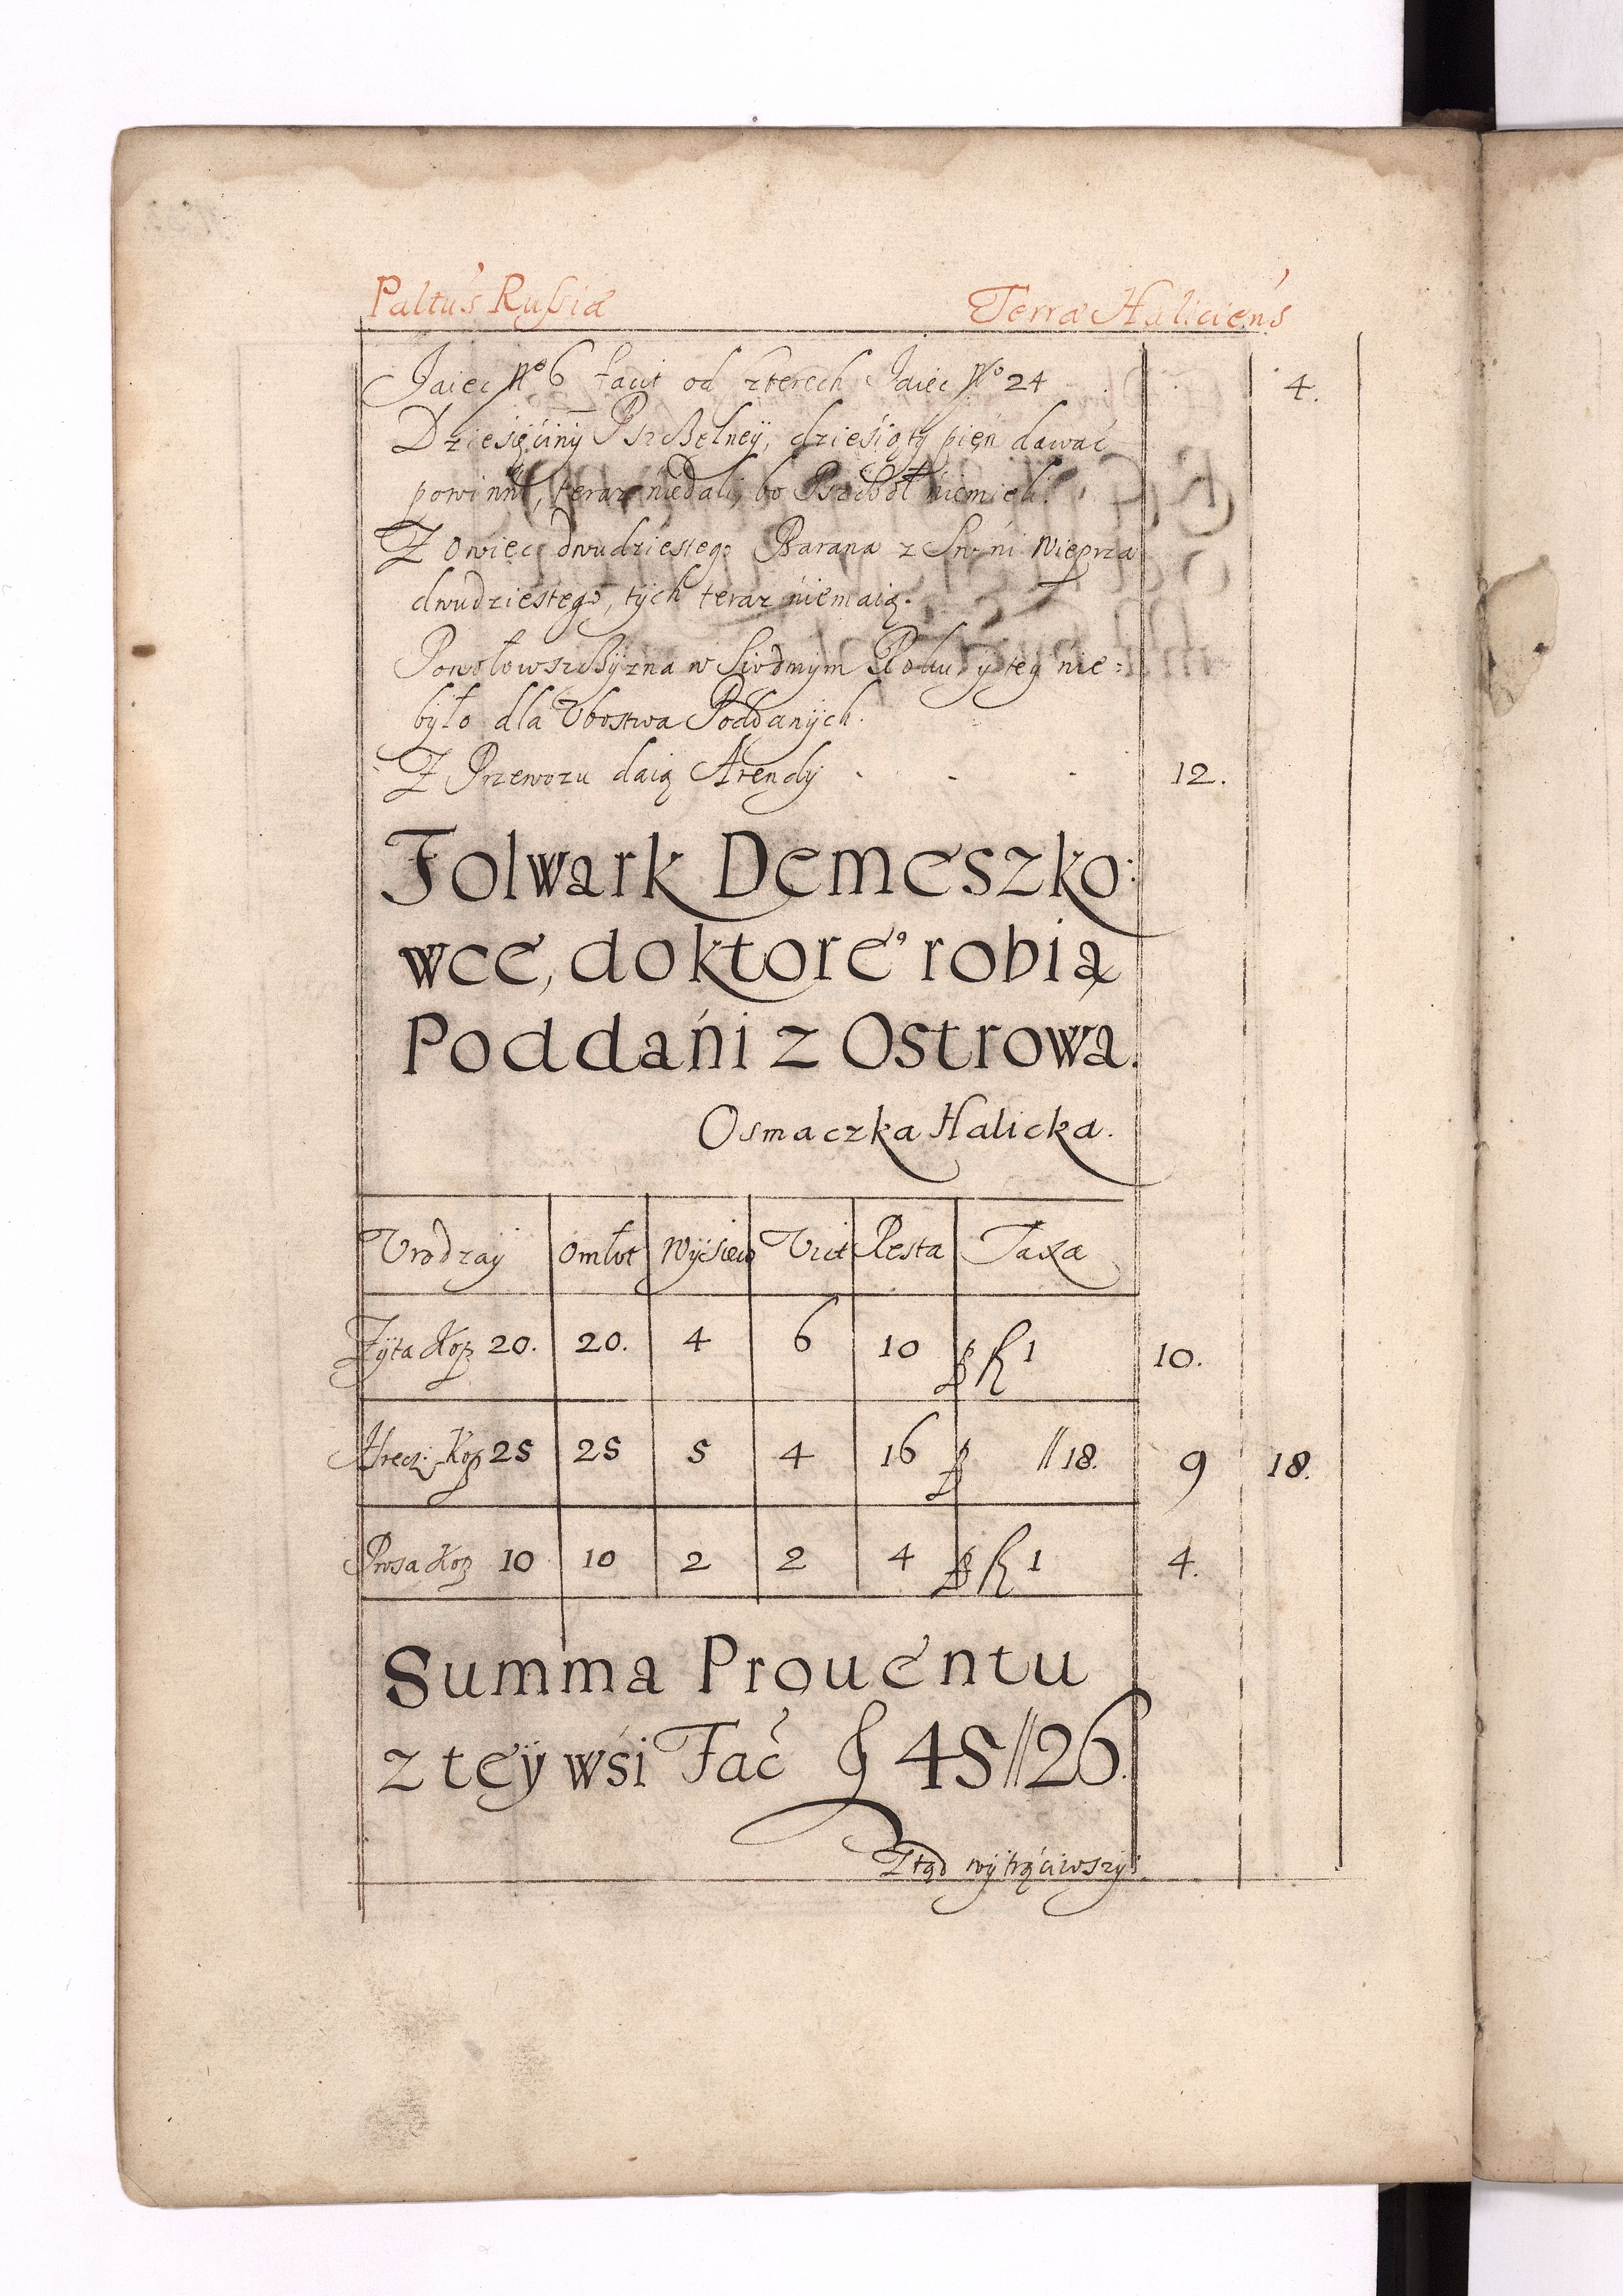 Paltus Rußiæ Terræ Haliciens
Jaiec No 6 facit od zterech Jaiec No 24 4.
Dziesięciny Pszczelneÿ, dziesiąty pień dawać
powinni, teraz niedali, bo Pszczoł niemieli.
Z Owiec dwudziestego Barana z Swini Wieprza
dwudziestego, tÿch teraz niemaią.
Powołowszczÿzna w Siodmym Roku y teÿ nie=
było dla Vbostwa Poddanÿch.
Z Przewozu daią Arendÿ . . . 12.
Folwark Demeszko:
wce, do ktore⁹ robią
Poddańi z Ostrowa.
Osmaczka Halicka.
Vrodzaÿ Omłot Wÿsiew Vict Resta Taxa
Zÿta Kop 20. 20. 4 6 10 p fl 1 10.
Hrecz: Kop 25 25 5 4 16 p // 18. 9 18.
Prosa Kop 10 10 2 2 4 p fl 1 4.
Summa Prouentu
z teÿ wśi Fać fl 45//26.
Ztąd wÿtrąciwszÿ: